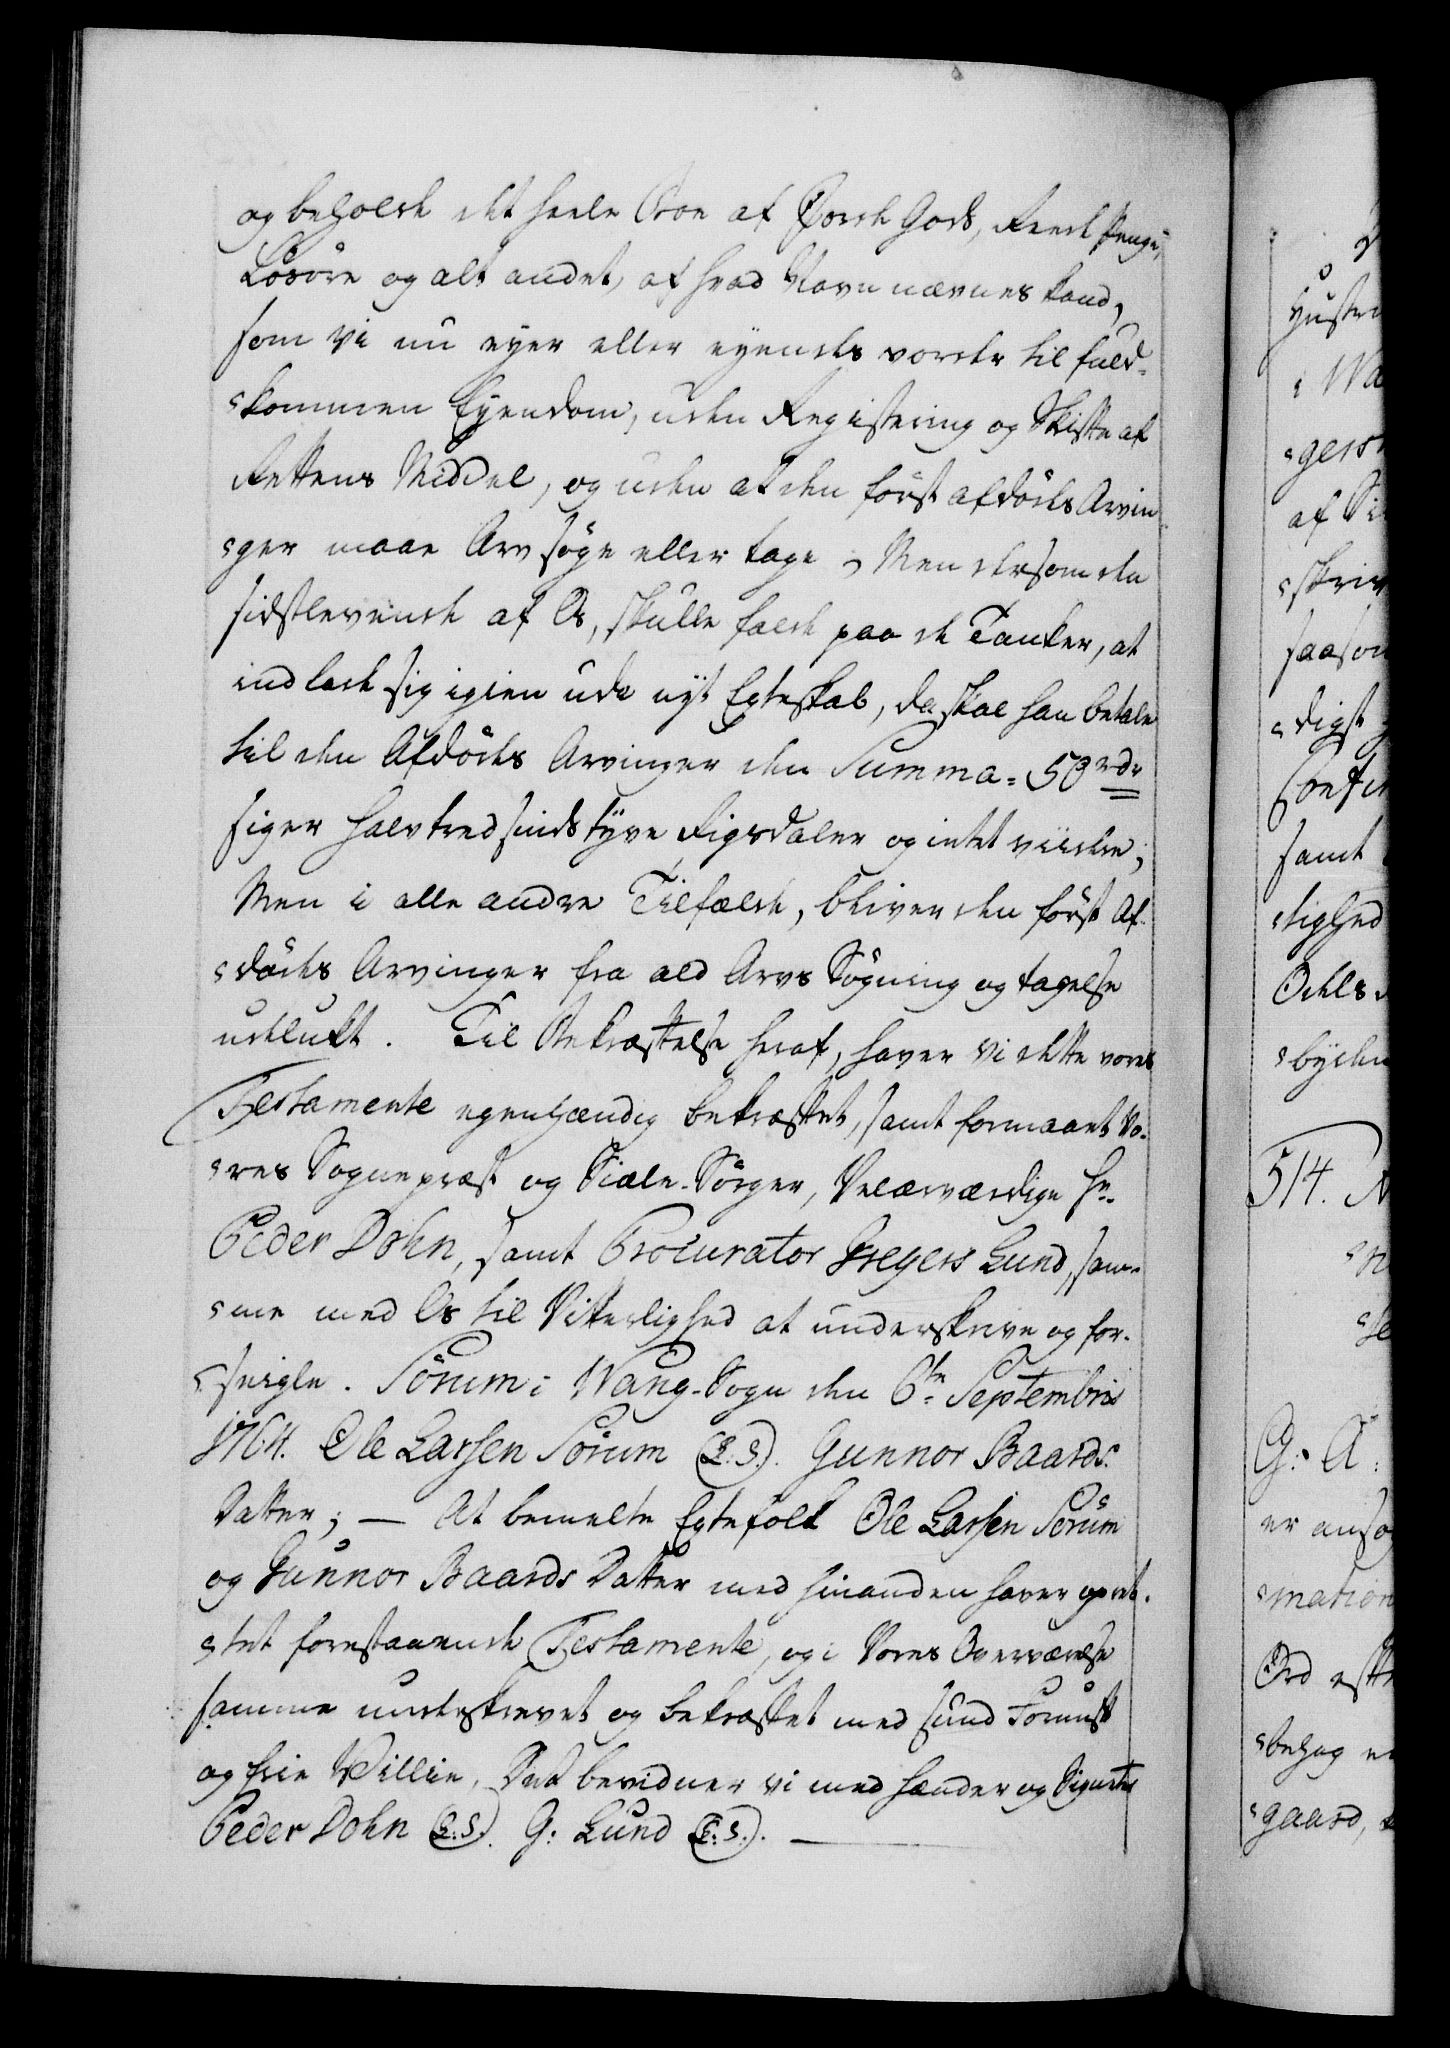 og beholde det heele Boe af Jorde Gods, Reede Penge,
Løsøre og alt andet, af hvad Navn nævnes kand,
som vi nu eyer eller eyendes vorder til fuld-
kommen Eyendom, uden Registering og Skifte af
Rettens Middel, og uden at den først afdødes Arvin
ger maae Arv søge eller tage, Men dersom den
sidstlevende af Os, skulle falde paa de Tanker, at
indlade sig igien udi nyt Egteskab, da skal han betale
til den Afdødes Arvinger den Summa = 50 rdr
siger halvtredsindstyve Rigsdaler og intet viidere;
Men i alle andre Tilfælde, bliver den først Af-
dødes Arvinger fra ald Arvs Søgning og tagelse
udelukt. Til Bekræftelse heraf, haver vi dette vores
Testamente egenhændig bekræftet, samt formaaet Vo-
res Sognepræst og Siæle-Sørger, Velærværdige Hr.
Peder Dohn, samt Procurator Gregers Lund, sam-
me med Os til Vitterlighed at underskrive og for-
seigle. Sörum i Wang-Sogn den 6te Septembris
1764. Ole Larsen Sörum (L.S.). Gunnor Baards
Datter; — At bemelte Egtefolk Ole Larsen Sörum
og Gunnor Baards Datter med hinanden haver opret-
tet forestaaende Testamente, og i Vores Overværelse
samme underskrevet og bekræftet med sund Fornuft
og frie Villie, Det bevidner vi med Hænder og Signeter
Peder Dohn (L:S.). G: Lund (L:S.). —
Hustru
Wa
af
skriv
saasom
digst
samt
lighed
514.
G: A:
mation
Ord efter
behag
gaard,